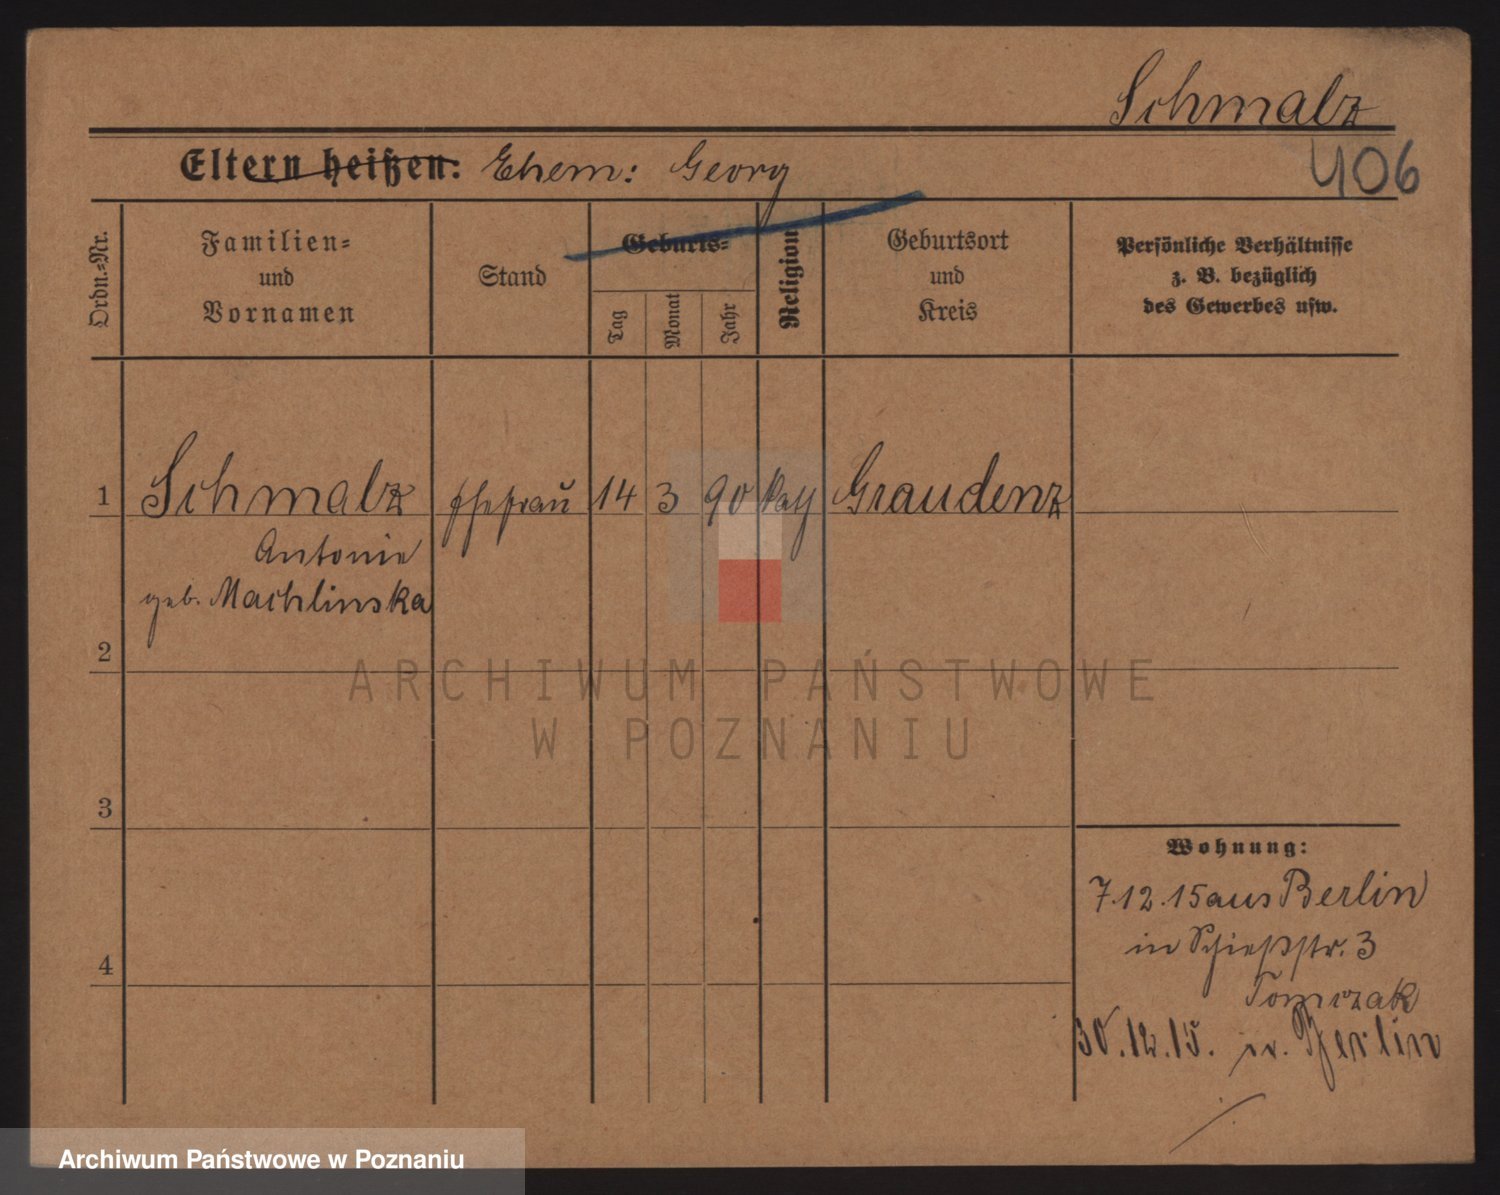 Schmalz
Eltern heißen: Ehem: Georg
406
Ordn.=Nr.
Familien=
und
Vornamen
Stand
Geburts=
Tag
Monat
Jahr
Religion
Geburtsort
und
Kreis
Persönliche Verhältnisse
z. B. bezüglich
des Gewerbes usw.
1 Schmalz Ehefrau 14 3 90 kath Graudenz
Antonie
geb. Machlinska
2
ARCHIWUM PAŃSTWOWE
W POZNANIU
3
Wohnung:
7.12.15 aus Berlin
in Schießstr. 3
4
Tomczak
30.12.15. n. Berlin
Archiwum Państwowe w Poznaniu